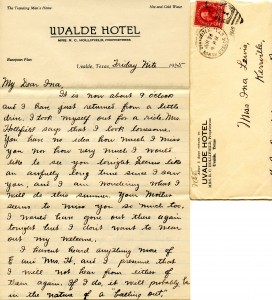 The Traveling Man's Home
Hot and Cold Water
UVALDE HOTEL
MRS. R. C. HOLLIFIELD, PROPRIETRESS
European Plan
Uvalde, Texas, Friday Nite 1925
My Dear Ina,
It is now about 9 o'clock
and I have just returned from a little
drive. I took myself out for a ride. Mrs.
Hollifield says that I look lonesome.
You have no idea how much I miss
you nor how very much I would
like to see you tonight. Seems like
an awfully long time since I saw
you, and I am wondering what I
will do this summer. Your Mother
seems to miss you so much too.
I would have gone out there again
tonight but I don't want to wear
out my welcome.
I havent heard anything more of
E and Mrs. H, and I presume that
I will not hear from either of
them again. If I do, it will probably be
in the nature of a "Calling out,"
UVALDE HOTEL
Miss Ina Lewis,
Kerrville,